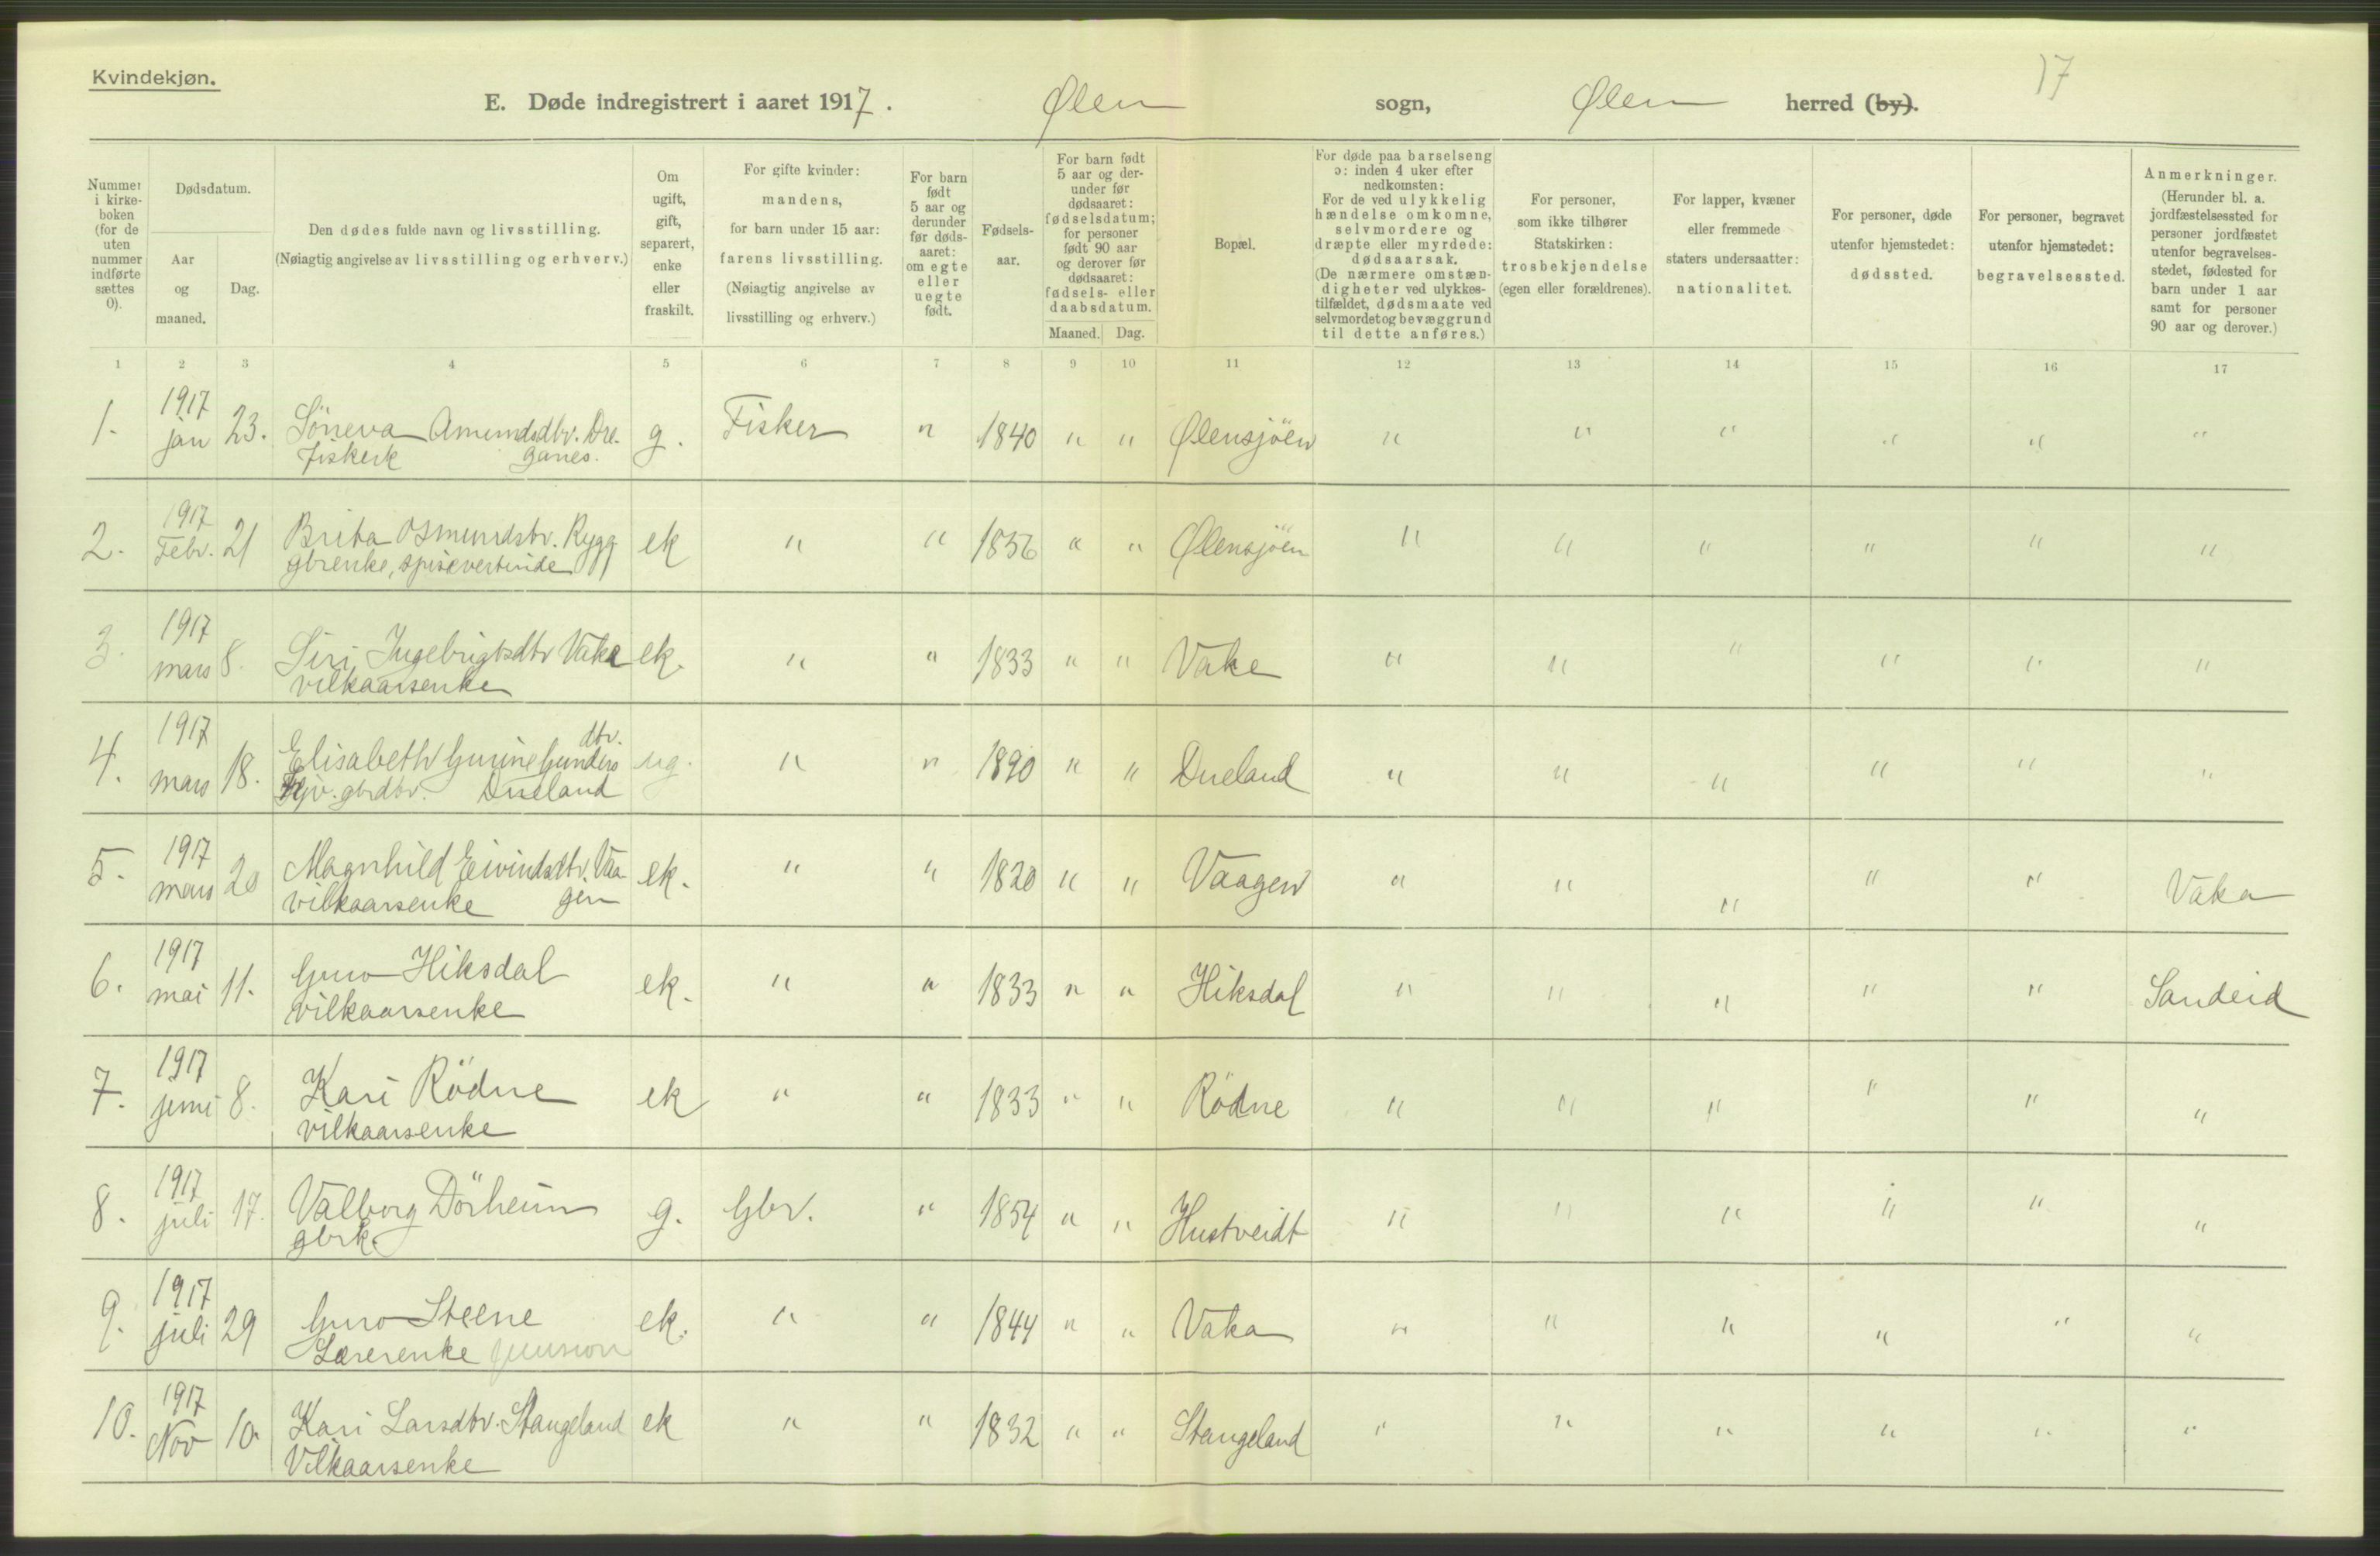 Kvindekjøn.
17
E. Døde indregistrert i aaret 1917. Ølen sogn, Ølen herred (by).
Nummer i kirkeboken (for de uten nummer indførte sættes 0).
Dødsdatum.
Aar og maaned.
Dag.
Den dødes fulde navn og livsstilling.
(Nøiagtig angivelse av livsstilling og erhverv.)
Om ugift, gift, separert, enke eller fraskilt.
For gifte kvinder: mandens, for barn under 15 aar: farens livsstilling. (Nøiagtig angivelse av livsstilling og erhverv.)
For barn født 5 aar og derunder før dødsaaret: om egte eller uegte født.
Fødselsaar.
For barn født 5 aar og derunder før dødsaaret: fødselsdatum; for personer født 90 aar og derover før dødsaaret: fødsels- eller daabsdatum.
Maaned. Dag.
Bopæl.
For døde paa barselseng ɔ: inden 4 uker efter nedkomsten: For de ved ulykkelig hændelse omkomne, selvmordere og dræpte eller myrdede: dødsaarsak. (De nærmere omstændigheter ved ulykkestilfældet, dødsmaate ved selvmordet og bevæggrund til dette anføres.)
For personer, som ikke tilhører Statskirken: trosbekjendelse (egen eller forældrenes).
For lapper, kvæner eller fremmede staters undersaatter: nationalitet.
For personer, døde utenfor hjemstedet: dødssted.
For personer, begravet utenfor hjemstedet: begravelsessted.
Anmerkninger. (Herunder bl. a. jordfæstelsessted for personer jordfæstet utenfor begravelsesstedet, fødested for barn under 1 aar samt for personer 90 aar og derover.)
1 2 3 4 5 6 7 8 9 10 11 12 13 14 15 16 17
1. 1917 jan 23. Söneva Amundsdtr. Dreganes. g. Fisker " 1840 " " Ølensjöen " " " " " "
fiskerk
2. 1917 Febr. 21 Brita Osmundsdtr. Rygg ek " " 1836 " " Ølensjöen " " " " " "
gbrenke, spisevertinde
3. 1917 mars 8. Siri Ingebrigtsdtr Vaka ek. " " 1833 " " Vake " " " " " "
vilkaarsenke
4. 1917 mars 18. Elisabeth Gurine Gundersdtr. ug. " " 1890 " " Dueland " " " " " "
gbrdtr. Dueland
5. 1917 mars 20 Magnhild Eivindsdtr. Vaagen ek. " " 1820 " " Vaagen " " " " " Vaka
vilkaarsenke
6. 1917 mai 11. Guro Hiksdal ek. " " 1833 " " Hiksdal " " " " " Sandeid
vilkaarsenke
7. 1917 juni 8. Kari Rödne ek " " 1833 " " Rödne " " " " " "
vilkaarsenke
8. 1917 juli 17. Valborg Dörheim g. Gbr. " 1854 " " Hustveidt " " " " " "
gbrk
9. 1917 juli 29 Guro Steene ek. " " 1844 " " Vaka " " " " " "
Lærerenke pension
10. 1917 Nov 10. Kari Larsdtr. Stangeland ek " " 1832 " " Stangeland " " " " " "
Vilkaarsenke